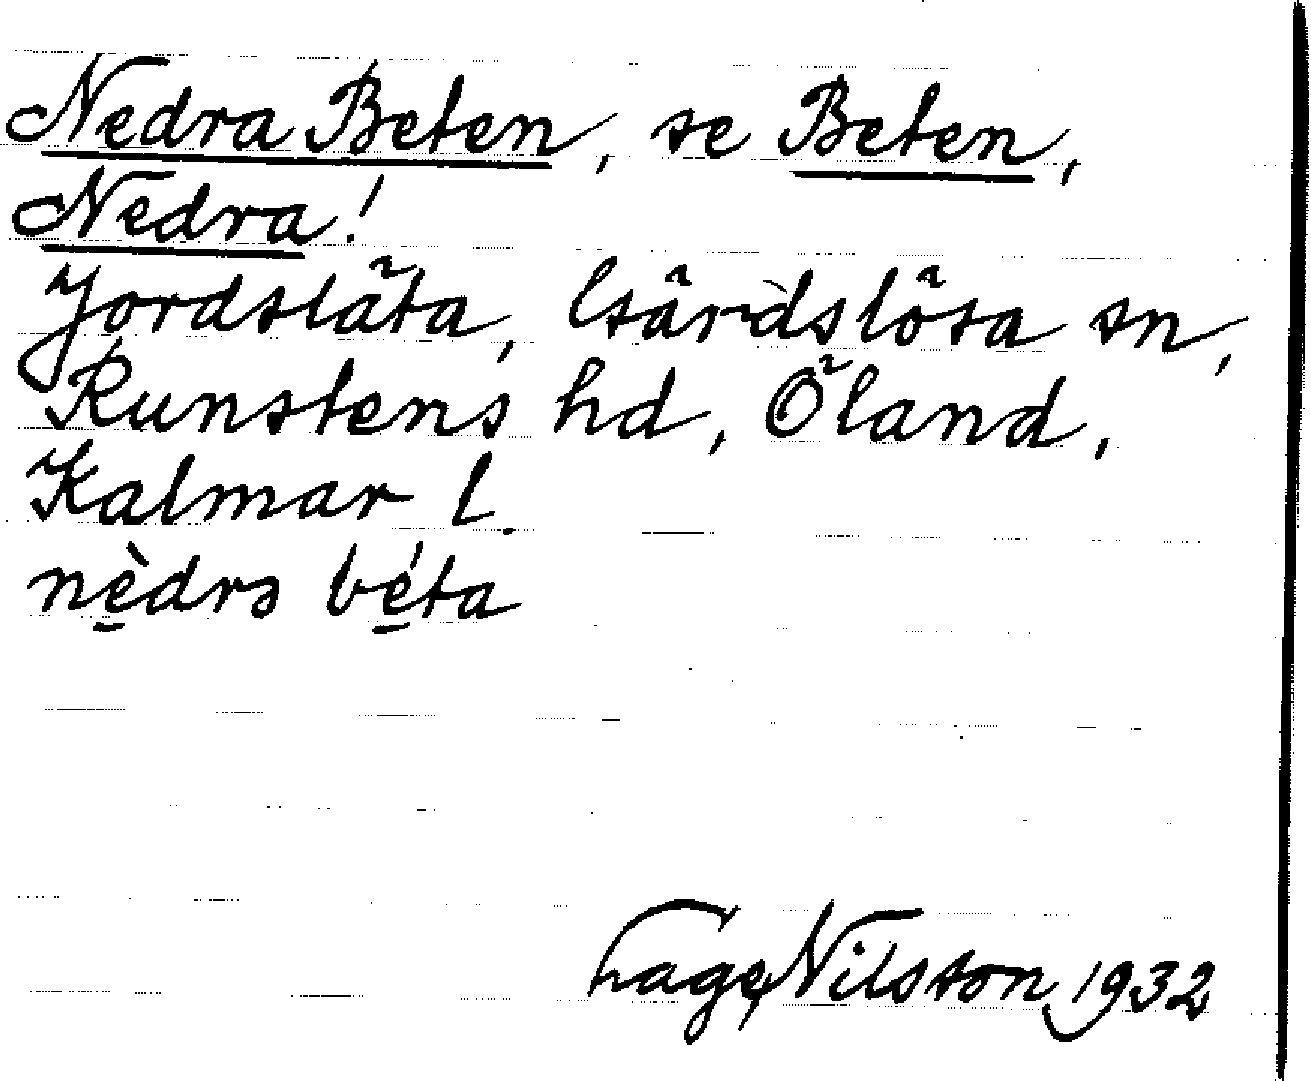 Nedra Beten, se Beten,
Nedra!
Jordsläta, Gärdslösa sn,
Runstens hd, Öland,
Kalmar l.
nèdrə béta
Tage Nilsson 1932